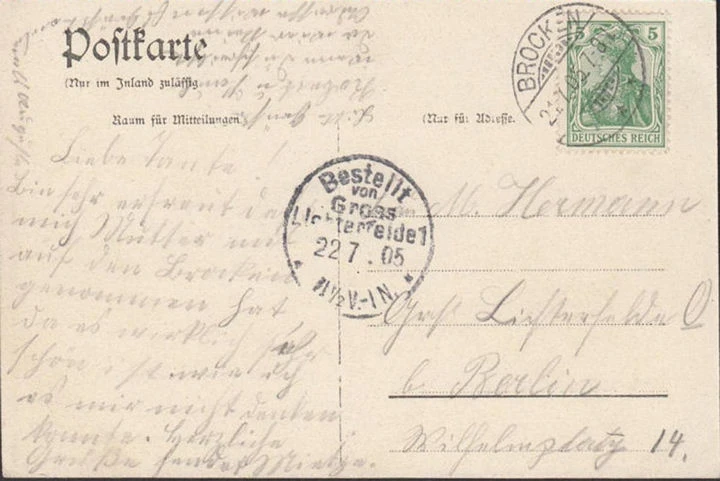 Postkarte
(Nur im Inland zulässig
Raum für Mitteilungen
(Nur für Adresse.
BROCKEN
5 5
DEUTSCHES REICH
Bestellt
von
Gross
Lichterfelde 1
22 7 . 05
11½V.-1N.
Liebe Tante!
Bin sehr erfreut das
mich Mutter mit
auf den Brocken
genommen hat
da es wirklich sehr
schön ist wie ich
es mir nicht denken
konnte. Herzliche
Grüße sendet Mietze.
M. Hermann
Groß Lichterfelde O
b. Berlin
Wilhelmplatz 14.